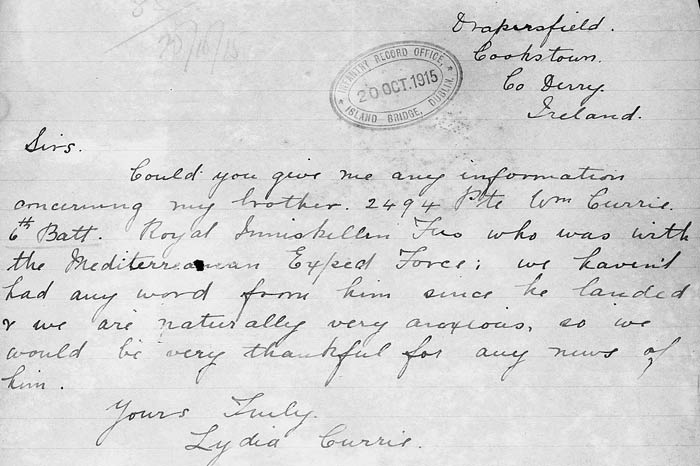 20/10/15
Drapersfield.
Cookstown.
Co Derry.
Ireland.
INFANTRY RECORD OFFICE,
20 OCT. 1915
ISLAND BRIDGE, DUBLIN.
Sirs.
Could you give me any information
concerning my brother. 2494 Pte Wm Currie.
6th Batt. Royal Inniskellin Fus who was with
the Mediterranean Exped Force; we haven't
had any word from him since he landed
& we are naturally very anxious, so we
would be very thankful for any news of
him.
Yours Truly.
Lydia Currie.